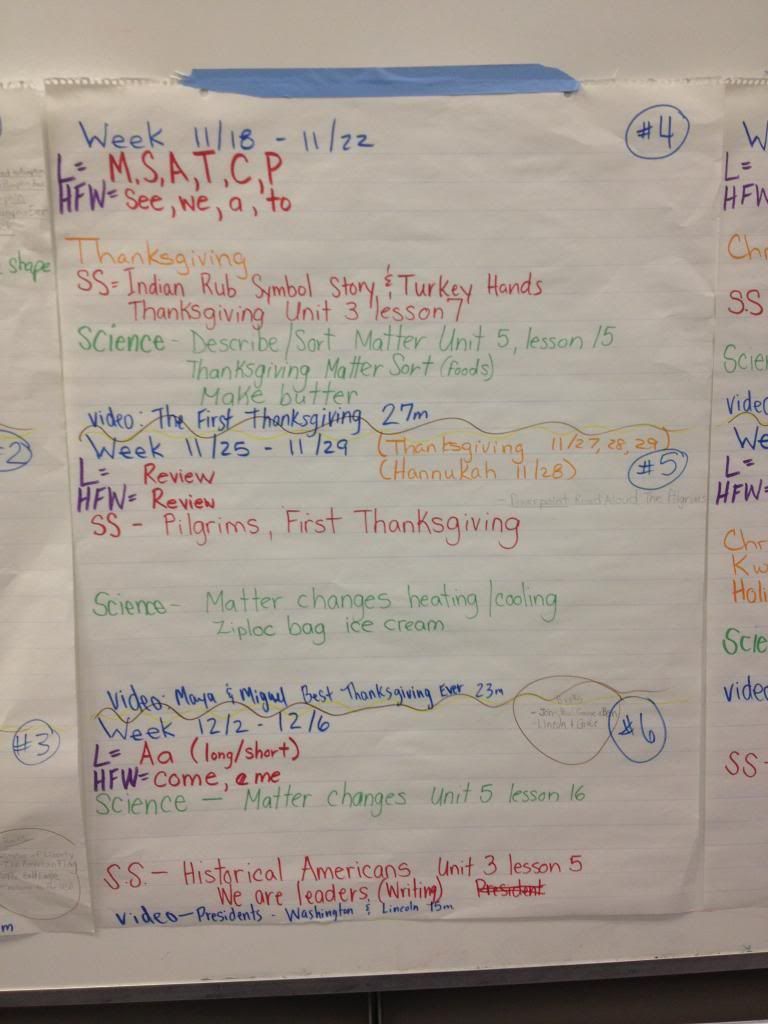 Week 11/18 - 11/22
#4
L= M,S,A,T,C,P
HFW= see, we, a, to
Thanksgiving
SS= Indian Rub Symbol Story & Turkey Hands
Thanksgiving Unit 3 lesson 7
Science - Describe/Sort Matter Unit 5, lesson 15
Thanksgiving Matter Sort (foods)
Make butter
video: The First Thanksgiving 27m
Week 11/25 - 11/29
(Thanksgiving 11/27, 28, 29)
(Hannukah 11/28)
#5
L= Review
HFW= Review
- Powerpoint Read Aloud The Pilgrims
SS - Pilgrims, First Thanksgiving
Science- Matter changes heating/cooling
Ziploc bag ice cream
Video: Maya & Miguel Best Thanksgiving Ever 23m
Week 12/2 - 12/6
#6
L= Aa (long/short)
HFW= come, me
Science - Matter changes Unit 5 lesson 16
S.S. - Historical Americans Unit 3 lesson 5
We are leaders (Writing) President
video-Presidents - Washington & Lincoln 15m
shape
#3
m
L=
HFW=
SS
video
L=
HFW=
SS-